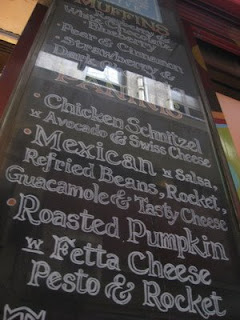 MUFFINS
White Chocolate &
Blueberry
• Pear & Cinnamon
• Strawberry &
Dark
• Chicken Schnitzel
w Avocado & Swiss Cheese
• Mexican w Salsa,
Refried Beans, Rocket,
Guacamole & Tasty Cheese
• Roasted Pumpkin
w Fetta Cheese
Pesto & Rocket